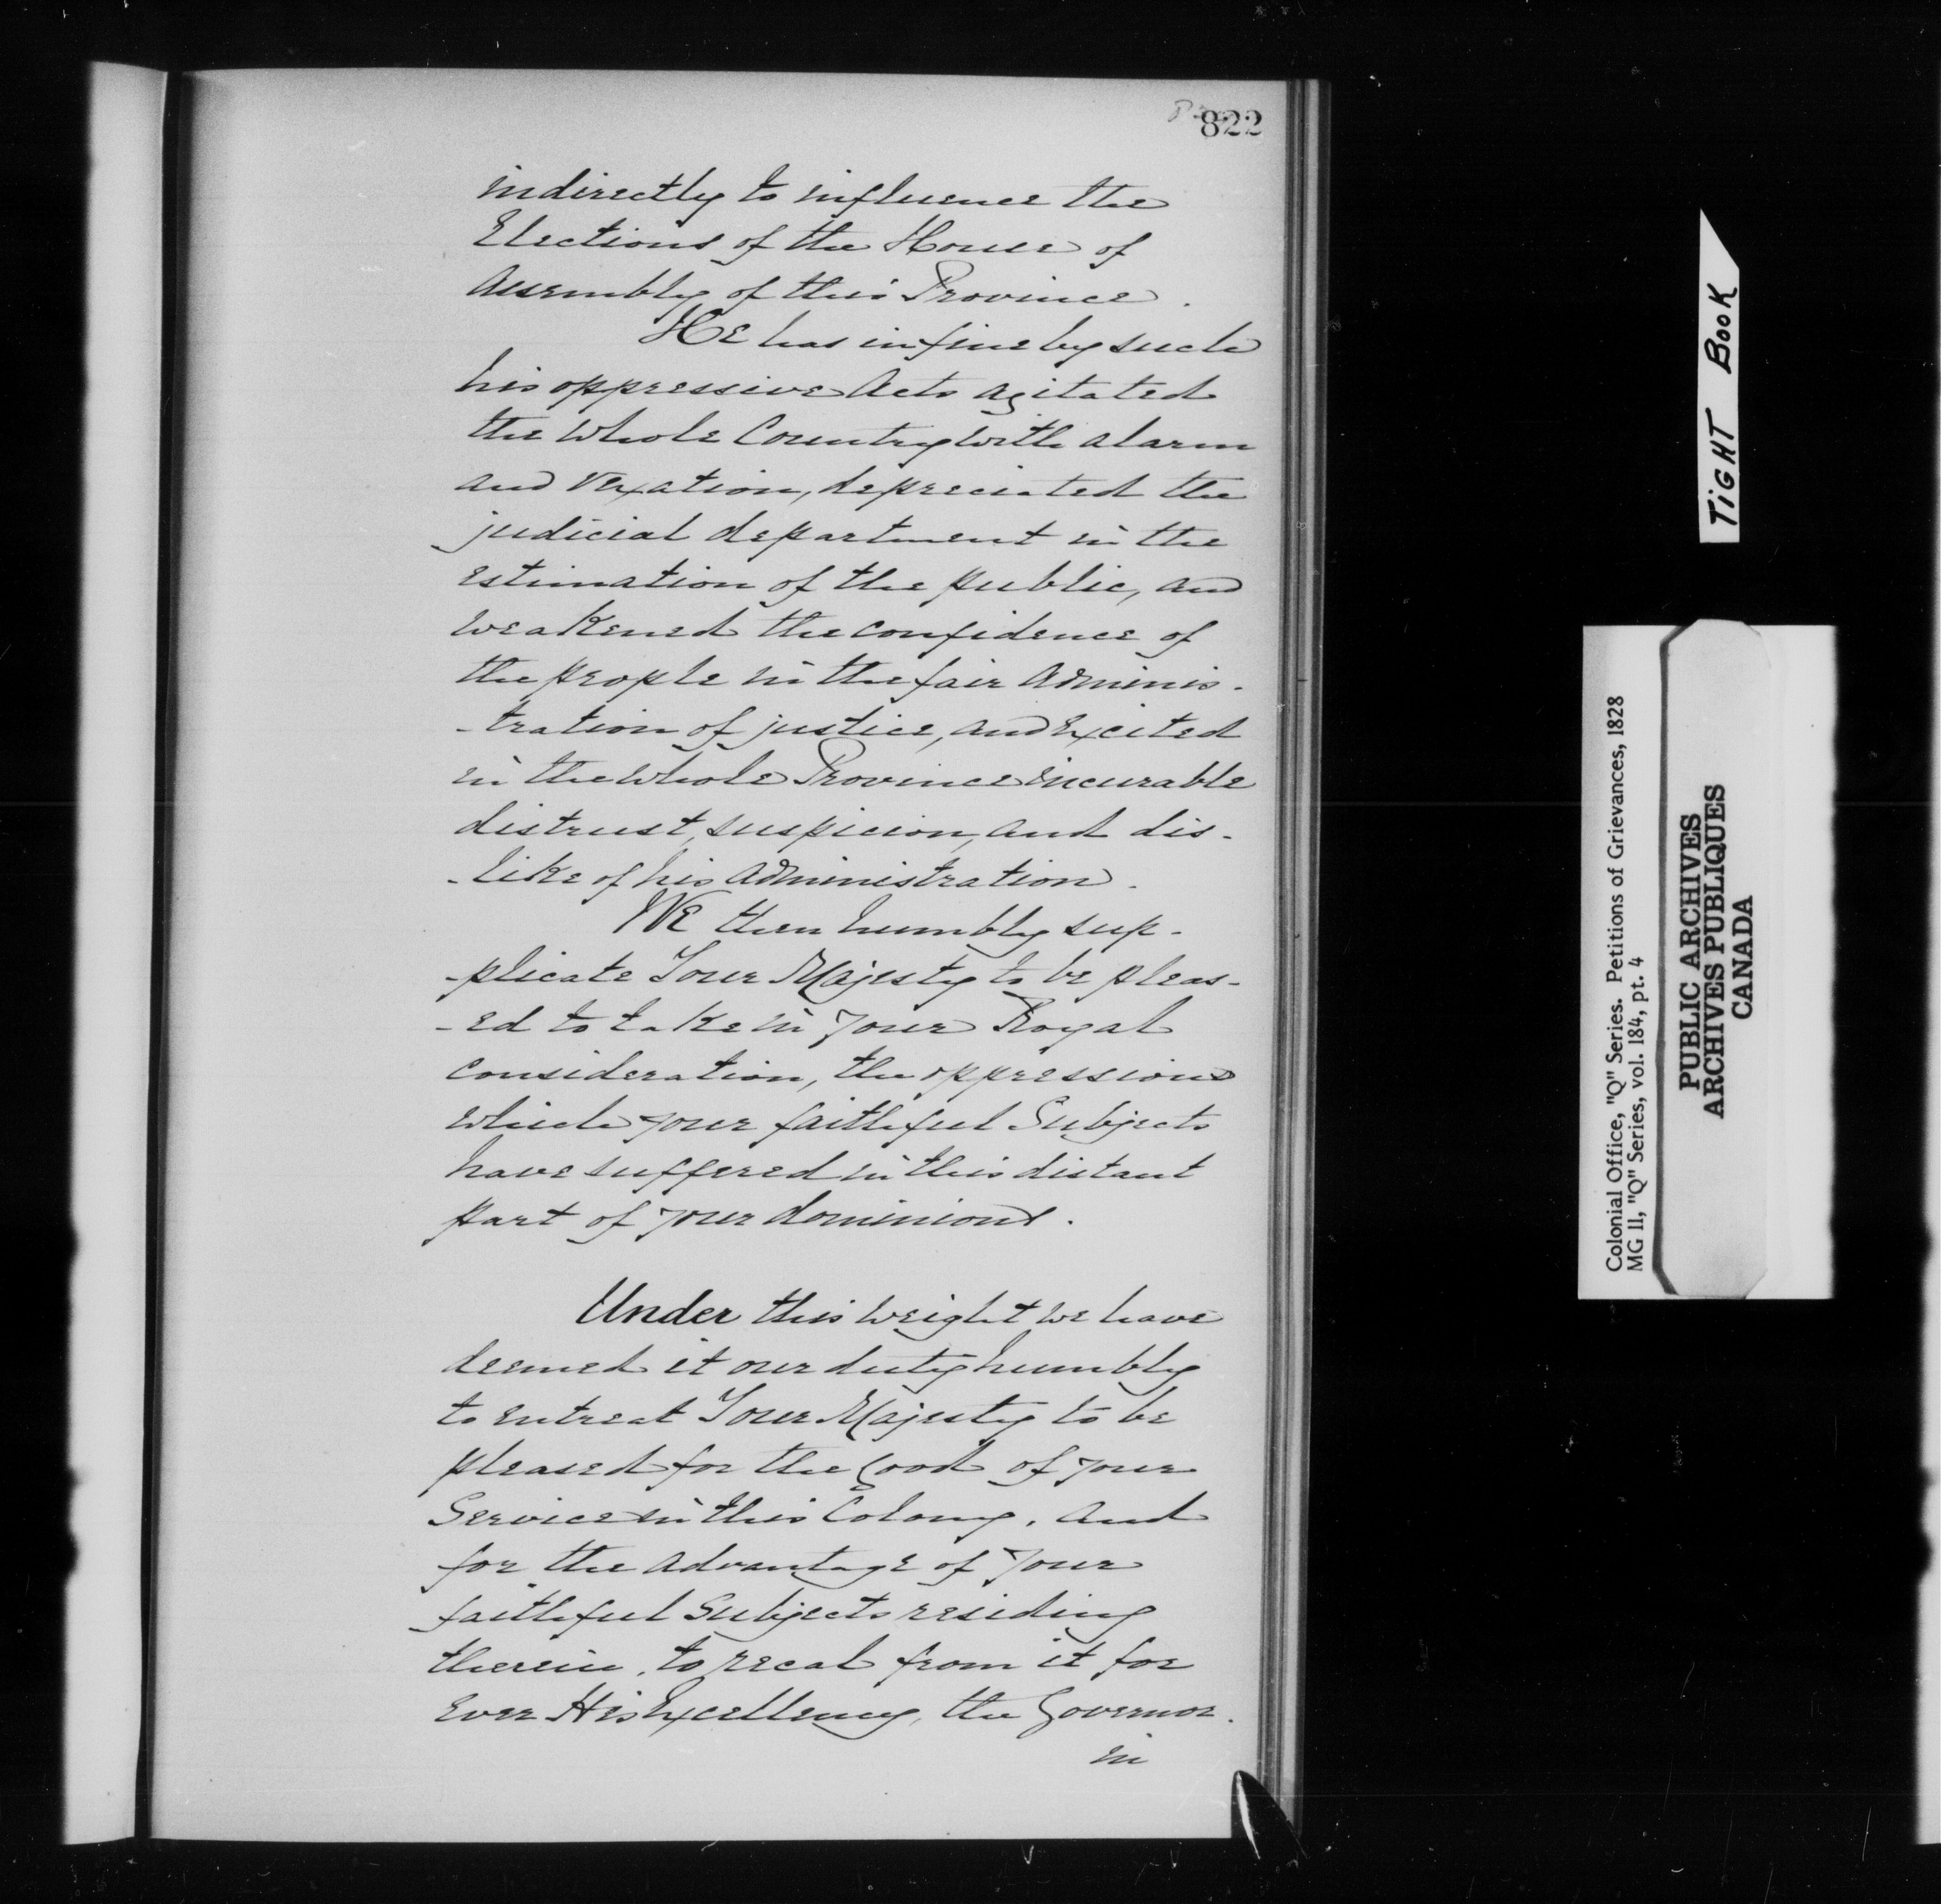 822
indirectly to influence the
Elections of the House of
Assembly of this Province.
He has in fine by such
his oppressive Acts agitated
the whole Country with alarm
and vexation, depreciated the
judicial department in the
estimation of the public, and
weakened the confidence of
the people in the fair Adminis-
-tration of justice, and excited
in the whole Province incurable
distrust, suspicion, and dis-
-like of his administration.
We then humbly sup-
-plicate Your Majesty to be pleas-
-ed to take in your Royal
consideration, the oppressions
which your faithful Subjects
have suffered in this distant
part of your dominions.
Under this weight we have
deemed it our duty humbly
to entreat Your Majesty to be
pleased for the good of your
Service in this Colony, and
for the advantage of your
faithful Subjects residing
therein, to recal from it for
ever His Excellency, the Governor.
in
TIGHT BOOK
Colonial Office, "Q" Series. Petitions of Grievances, 1828
MG 11, "Q" Series, vol. 184, pt. 4
PUBLIC ARCHIVES
ARCHIVES PUBLIQUES
CANADA